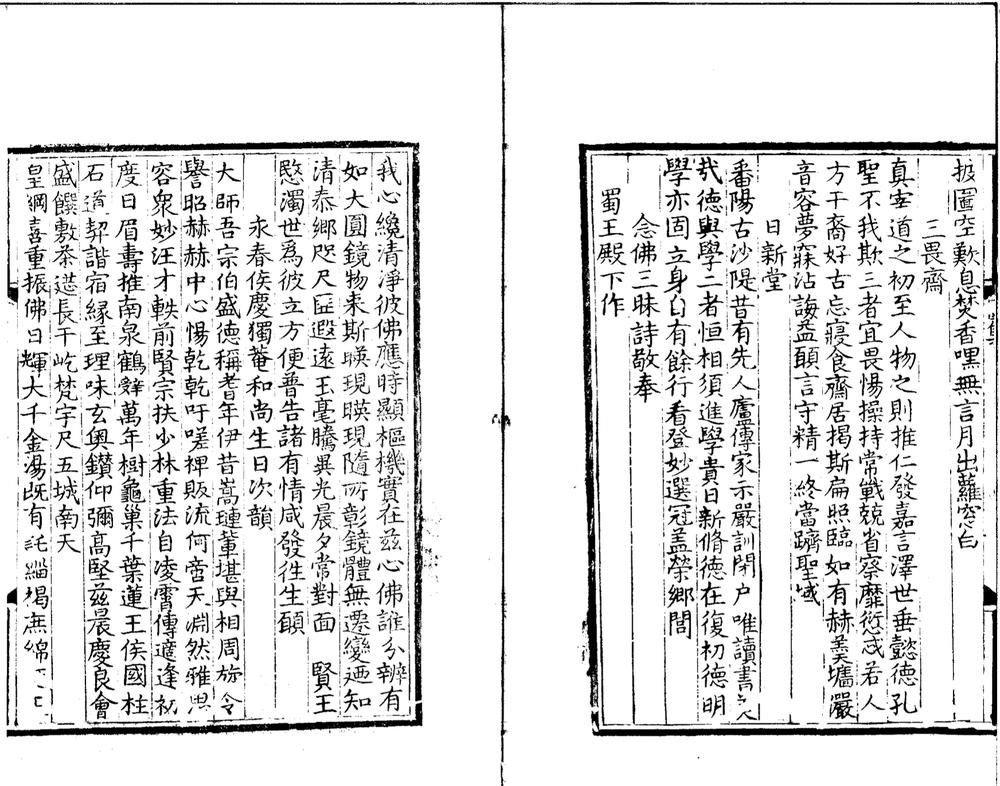 披圖空歎息焚香嘿無言月出蘿窓白
三畏齋
真宰道之初至人物之則推仁發嘉言澤世垂懿德孔
聖不我欺三者宜畏惕操持常戰兢省察靡愆忒若人
方干裔好古忘寢食齋居揭斯扁照臨如有赫羹墻嚴
音容夢寐沾誨益願言守精一終當躋聖域
日新堂
番陽古沙隄昔有先人廬傳家示嚴訓閉户唯讀書
㢤德與學二者恒相須進學貴日新脩德在復初德明
學亦固立身自有餘行看登妙選冠盖榮鄉閭
念佛三昧詩敬奉
蜀王殿下作
我心纔清淨彼佛應時顯樞機實在兹心佛誰分辧有
如大圓鏡物来斯暎現暎現隨所彰鏡體無遷變廼知
清泰鄉咫尺匪遐遠玉毫騰異光晨夕常對面 賢王
愍濁世爲彼立方便普告諸有情咸發徃生願
永春侯慶獨菴和尚生日次韻
大師吾宗伯盛德稱耆年伊昔嵩璉輩堪與相周旋令
譽昭赫赫中心惕乾乾吁嗟裨販流何啻天淵然雅思
容衆妙汪才軼前賢宗扶少林重法自凌霄傳適逢初
度日眉壽推南泉鶴算萬年樹龜巢千葉蓮王侯國柱
石道契諧宿緣至理味玄奥鑚仰彌高堅兹晨慶良會
盛饌敷茶莚長干屹梵宇尺五城南天
皇綱喜重振佛日輝大千金湯既有託緇褐庶綿